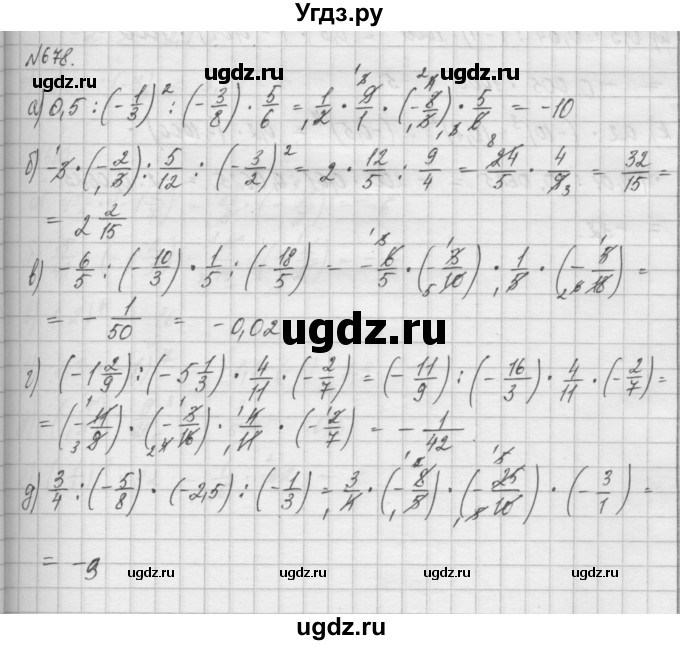 Угдз.ру
№678.
ugdz.ru ugdz.ru ugdz.ru
а) 0,5 : (-1/3)² : (-3/8) · 5/6 = 1/2 · 9/1 · (-8/3) · 5/6 = -10
б) -3 · (-2/3) : 5/12 : (-3/2)² = 2 · 12/5 : 9/4 = 24/5 · 4/9 = 32/15 =
= 2 2/15
в) -6/5 : (-10/3) · 1/5 : (-18/5) = -6/5 · (-3/10) · 1/5 · (-5/18) =
= -1/50 = -0,02
ugdz.ru
г) (-1 2/9) : (-5 1/3) · 4/11 · (-2/7) = (-11/9) : (-16/3) · 4/11 · (-2/7) =
= (-11/9) · (-3/16) · 4/11 · (-2/7) = -1/42
д) 3/4 : (-5/8) · (-2,5) : (-1/3) = 3/4 · (-8/5) · (-25/10) · (-3/1) =
= -9
ugdz.ru ugdz.ru ugdz.ru
ugdz.ru